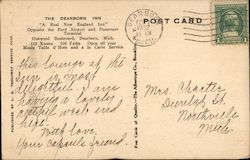 THE DEARBORN INN
"A Real New England Inn"
Opposite the Ford Airport and Passenger
Terminal
Oakwood Boulevard, Dearborn, Mich.
108 Rooms 108 Baths Open all year
Meals Table d'Hote and a la Carte Service
POST CARD
DEARBORN
MICH.
This lounge of the
Inn is most
delightful. I am
having a lovely
week end
here.
With love,
Your capsule friend.
Mrs. Charter
Dunlap St.
Northville
Mich.